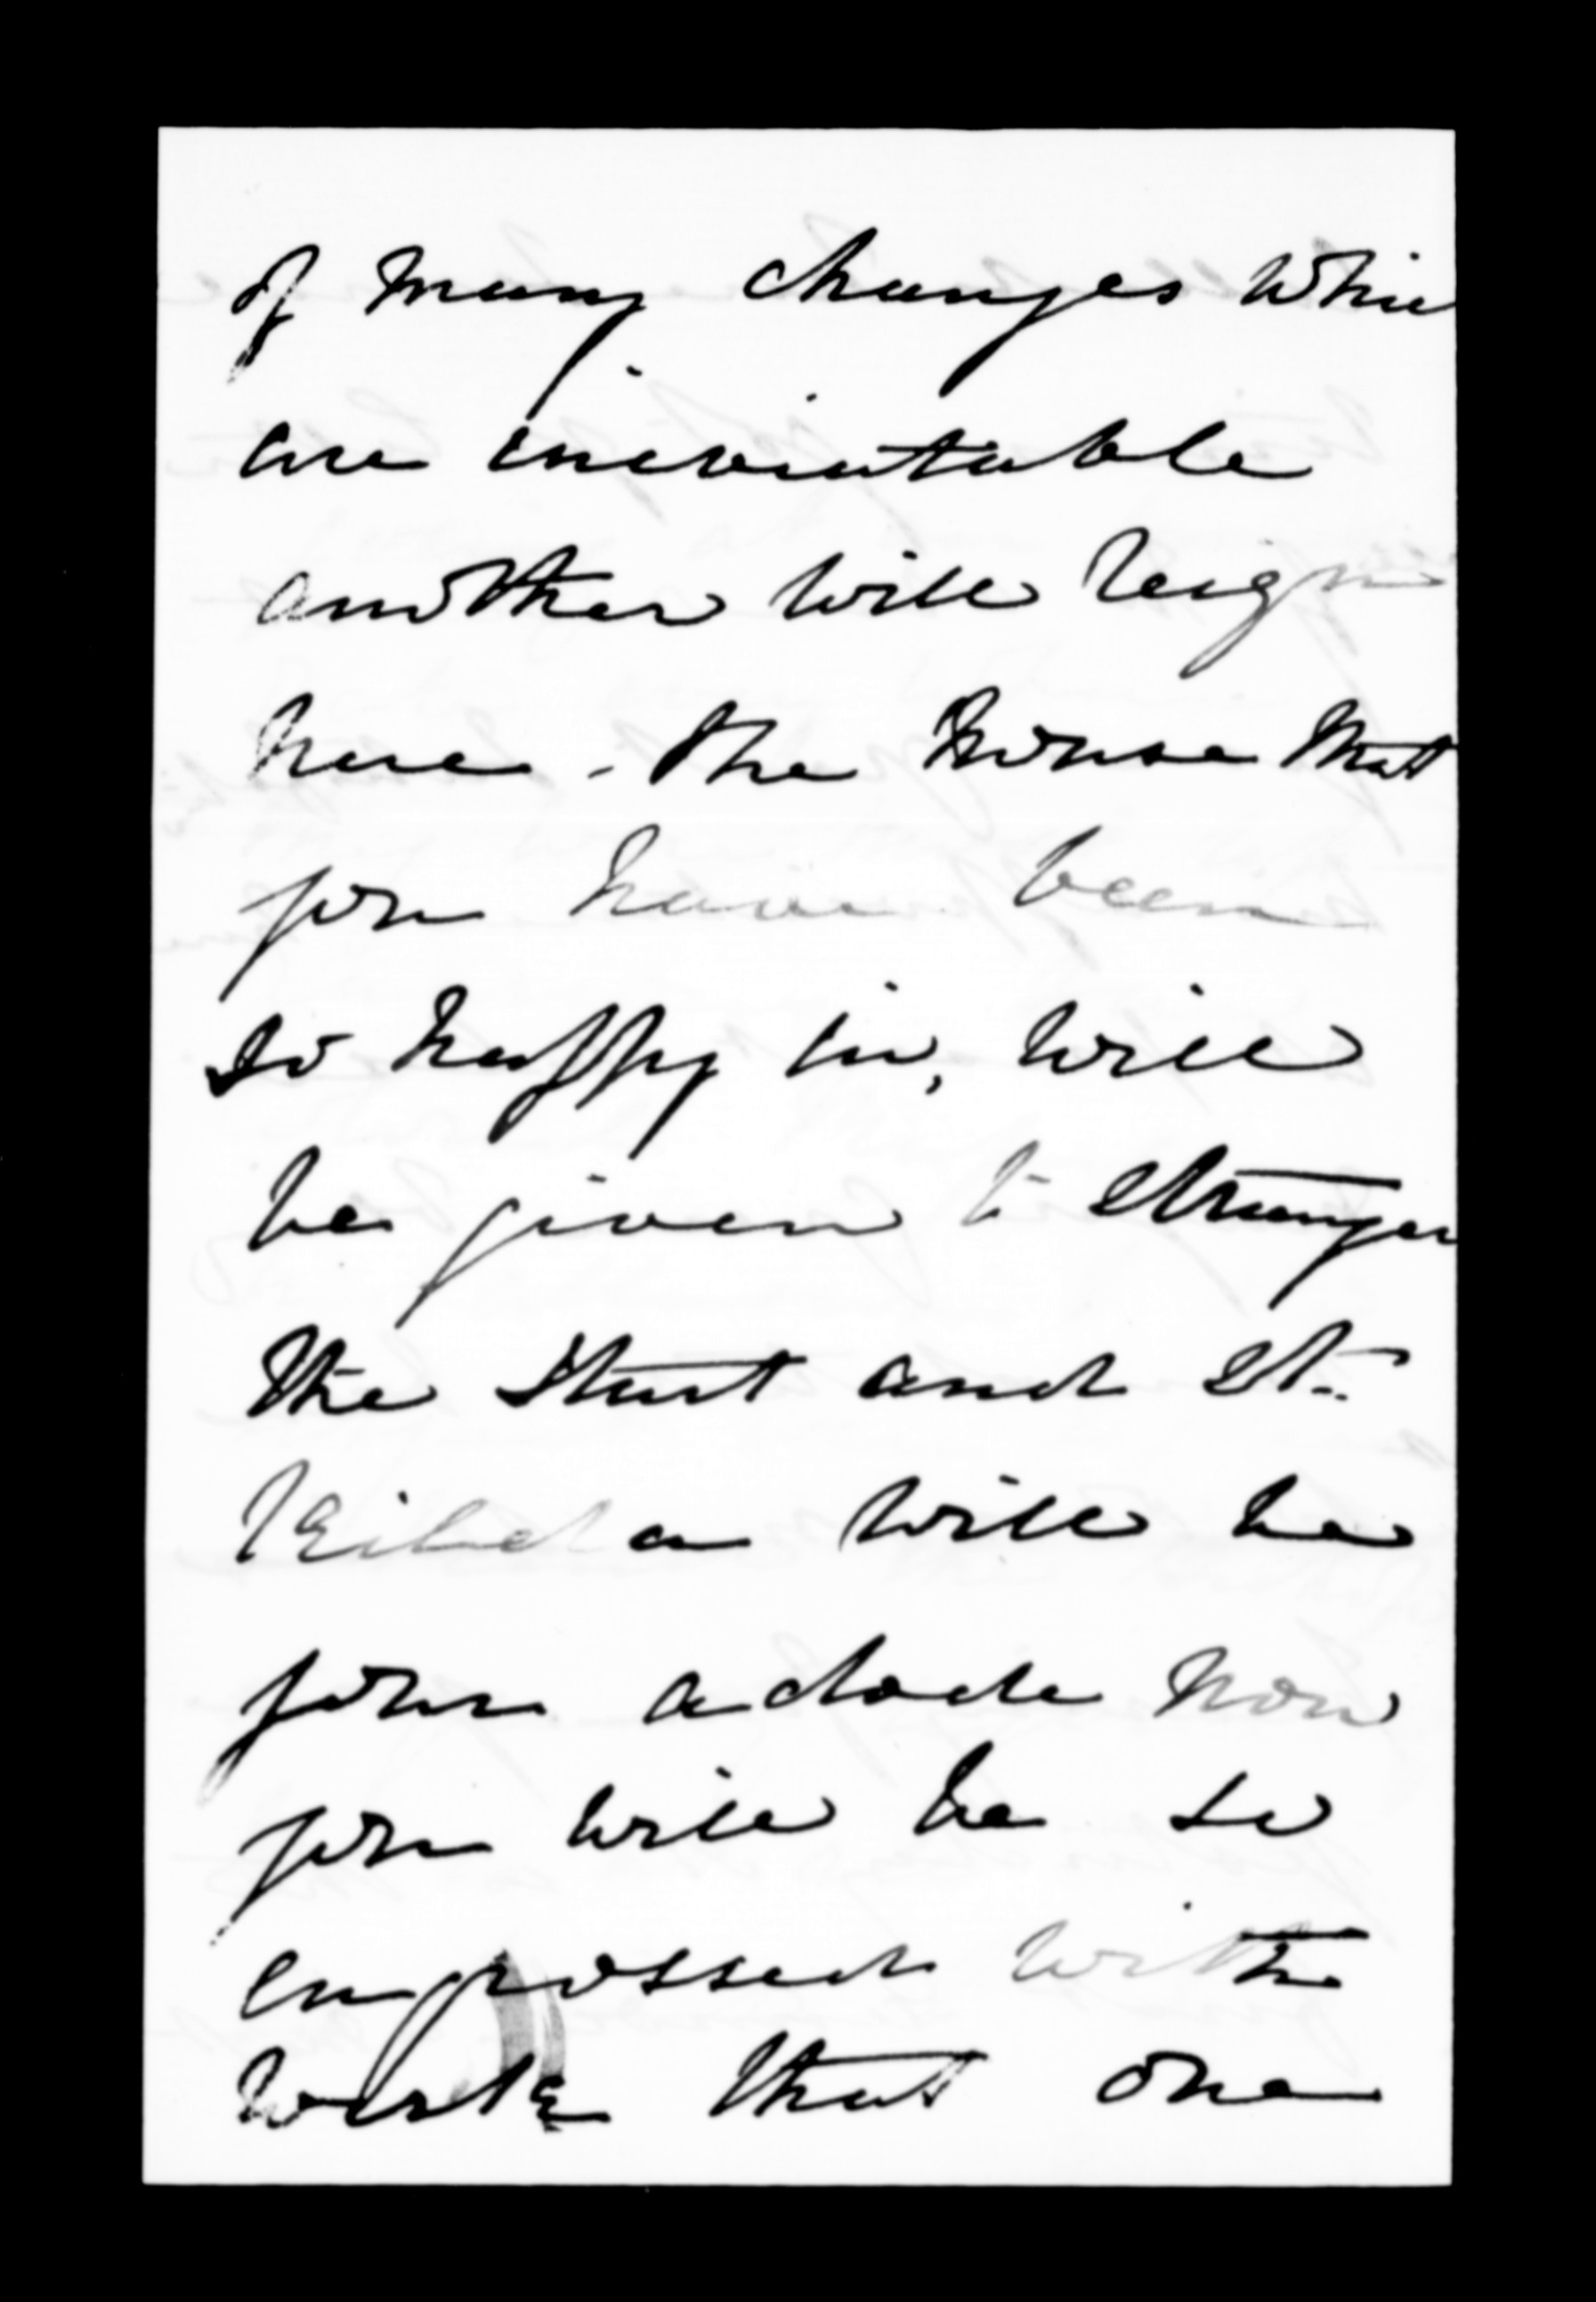 of many changes whic
are inevitable
another will reign
here - the house that
you have been
so happy in, will
be given to stranger
the Hunt and St.
Kilda will be
your abode now
you will be so
engrossed with
work that one